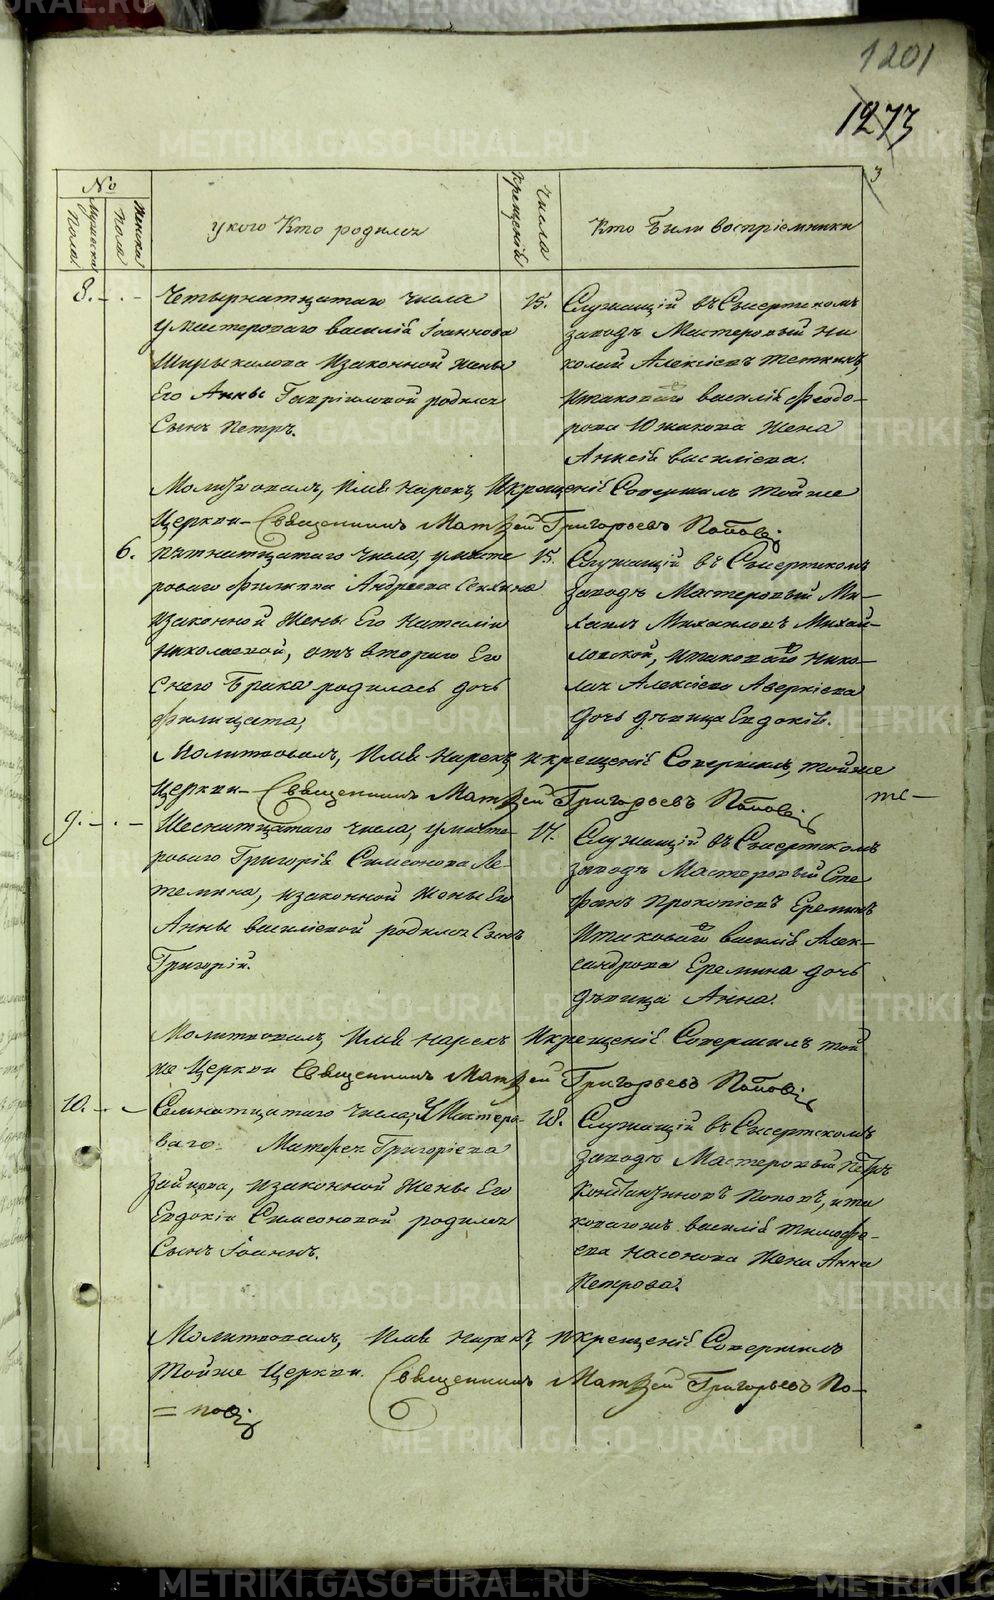 METRIKI.GASO-URAL.RU
1201
1273
3
№
Мужеска пола
Женска пола
у кого Кто родился
Числа крещенія
Кто Были воспріемники
8.
Четырнатцатаго числа
у мастероваго василія Іоаннова
Ширыкалова Изаконной жены
Его Анны Гавріиловой родился
Сынъ Петръ.
15.
Служащій въ Сысертскомъ
заводѣ Мастеровый Ни
колай Алексіевъ Теткинъ,
Итаковаго василія Феодо-
рова Южакова жена
Анисія василіева.
Молитвовалъ, Имя нарекъ, Икрещеніе Совершилъ тойже
Церкви - Священникъ Матѳей Григорьевъ Поповъ
6.
пятнатцатаго числа, у масте
роваго Филиппа Андреева Сенкина
изаконной жены Его Наталіи
николаевой, отъ втораго Его
Снею Брака родилась дочь
Филицата,
15.
Служащій въ Сысертскомъ
Заводѣ Мастеровый Ми-
хаилъ Михаиловъ Михай-
ловской, итаковаго Нико-
лая Алексіева Аверкіева
Дочь дѣвица Евдокія.
Молитвовалъ, Имя нарекъ, икрещеніе Совершилъ, тойже
Церкви - Священникъ Матѳей Григорьевъ Поповъ
те-
9.
Шеснатцатаго числа, у масте-
роваго Григорія Симеонова Ле-
темина, изаконной жены Его
Анны василіевой родился Сынъ
Григорій.
17.
Служащій въ Сысертскомъ
заводѣ Мастеровый Сте
фанъ Прокопіевъ Ереминъ
Итаковаго василія Алек-
сандрова Еремина дочь
дѣвица Анна.
Молитвовалъ, Имя нарекъ Икрещеніе Совершилъ той
же Церкви Священникъ Матѳей Григорьевъ Поповъ
10.
Семнатцатаго числа, у Мастеро-
ваго Матфея Григоріева
Зайцова, изаконной жены Его
Евдокіи Симеоновой родился
Сынъ Іоаннъ.
18.
Служащій въ Сысертскомъ
заводѣ Мастеровый Петръ
Константиновъ Поповъ, ита
ковагожъ василія Тимофе-
ева Насонова жена Анна
Петрова.
Молитвовалъ, Имя нарекъ, икрещеніе Совершилъ
Тойже Церкви. Священникъ Матѳей Григорьевъ По-
= повъ